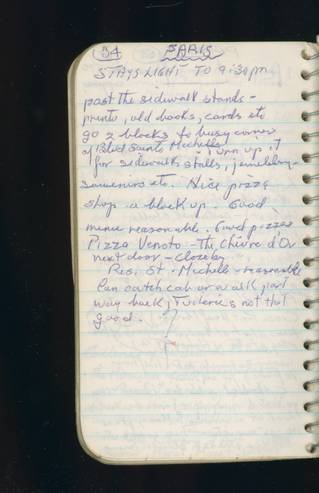 54 PARIS
STAYS LIGHT TO 9:30 pm
past the sidewalk stands -
prints, old books, cards etc
go 2 blocks to busy corner
of Blvd Sainte Michelle. Turn up it
for sidewalk stalls, jewelery -
souvenirs etc. Nice pizza
shop a block up. Good
menu reasonable. Good pizzas
Pizza Venoto - The Chèvre d'Or
next door - close by
Res. St. Michelle - reasonable
Can catch cab or walk part
way back, Tuileries not that
good. ?